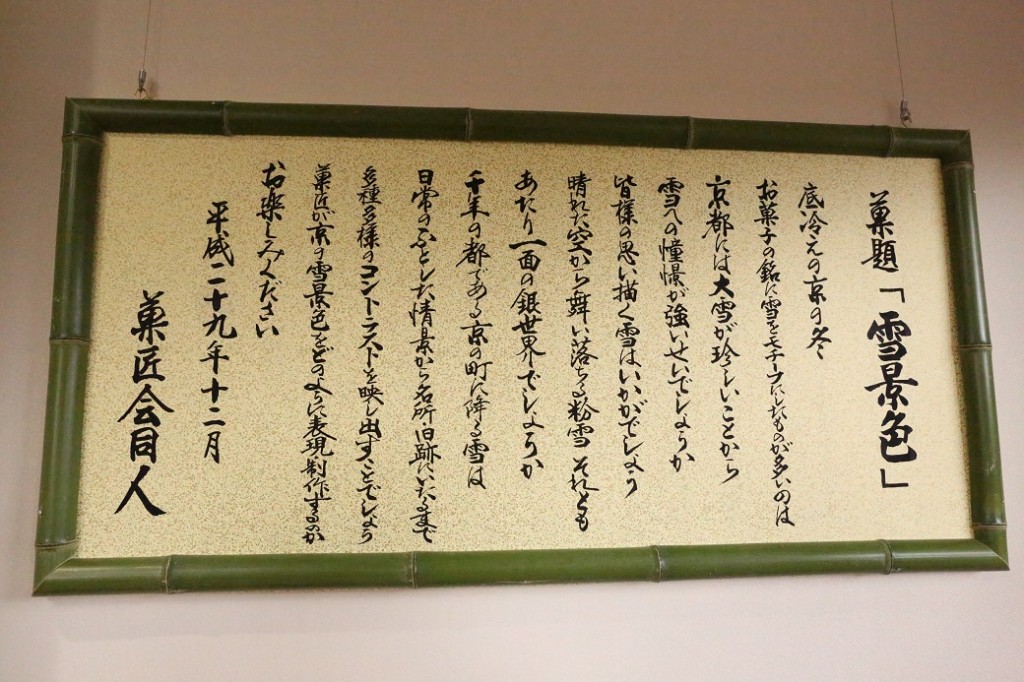 菓題「雪景色」
底冷えの京の冬
お菓子の銘に雪をモチーフにしたものが多いのは
京都には大雪が珍しいことから
雪への憧憬が強いせいでしょうか
皆様の思い描く雪はいかがでしょう
晴れた空から舞い落ちる粉雪 それとも
あたり一面の銀世界でしょうか
千年の都である京の町に降る雪は
日常のふとした情景から名所・旧跡にいたるまで
多種多様のコントラストを映し出すことでしょう
菓匠が京の雪景色をどのように表現制作するのか
お楽しみください
平成二十九年十二月
菓匠会同人